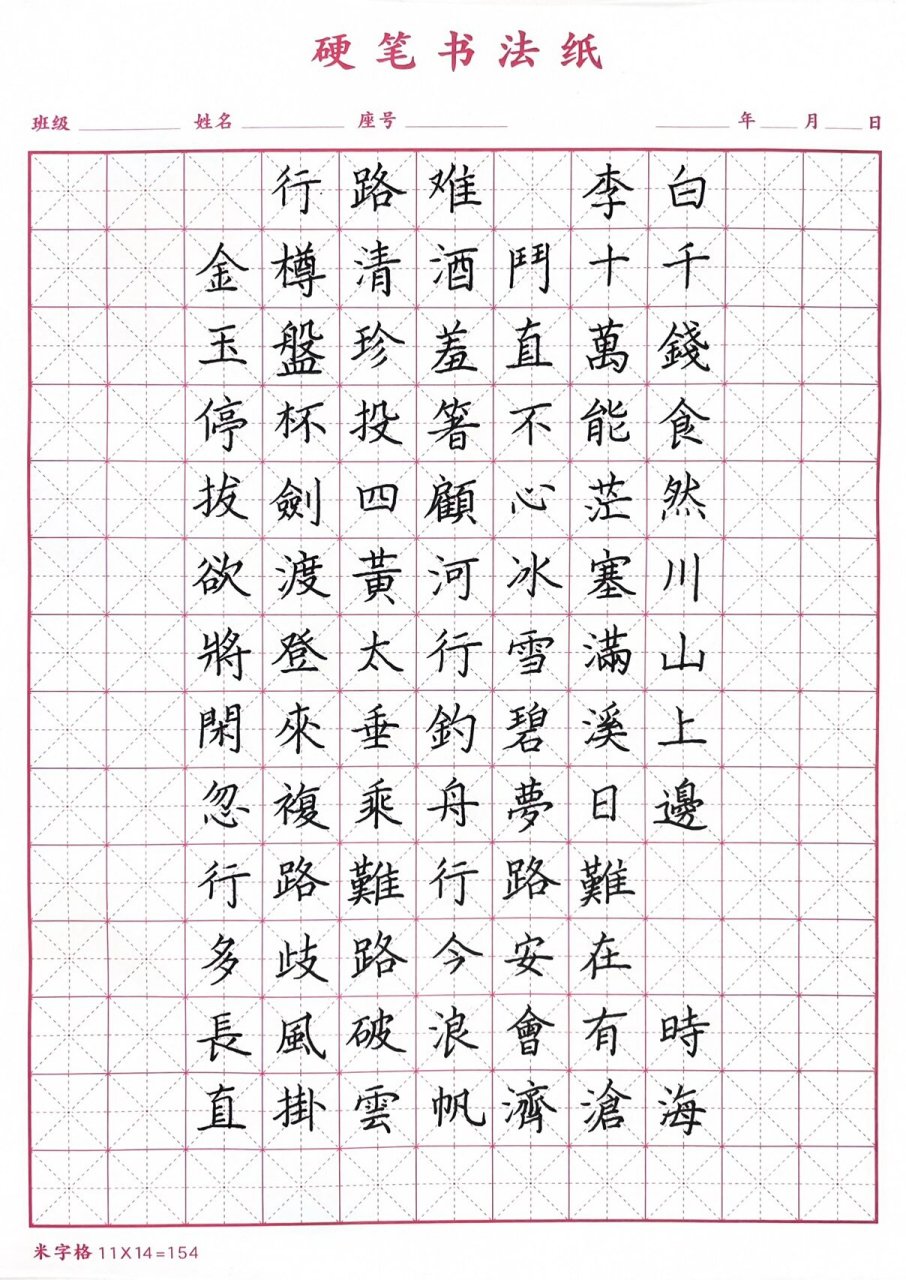 硬笔书法纸
班级 姓名 座号 年 月 日
行路难 李白
金樽清酒鬥十千
玉盤珍羞直萬錢
停杯投箸不能食
拔劍四顧心茫然
欲渡黃河冰塞川
將登太行雪滿山
閑來垂釣碧溪上
忽複乘舟夢日邊
行路難行路難
多歧路今安在
長風破浪會有時
直掛雲帆濟滄海
米字格 11X14=154